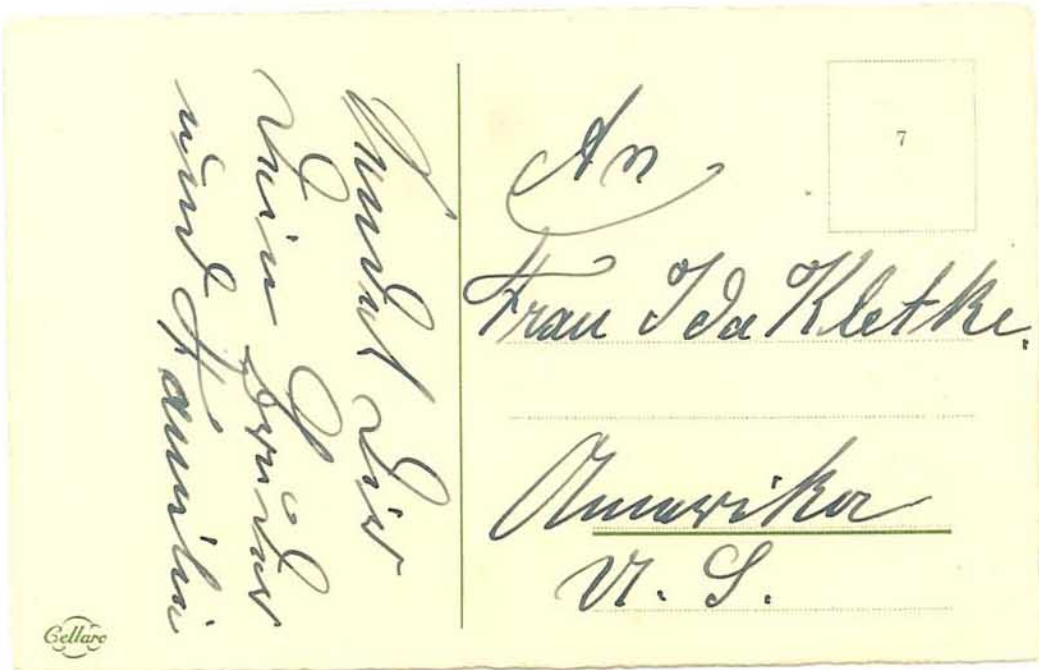 Sendet Dir
Dein Bruder
und Familie
An
Frau Ida Kletke.
Amerika
U. S.
7
Cellaro